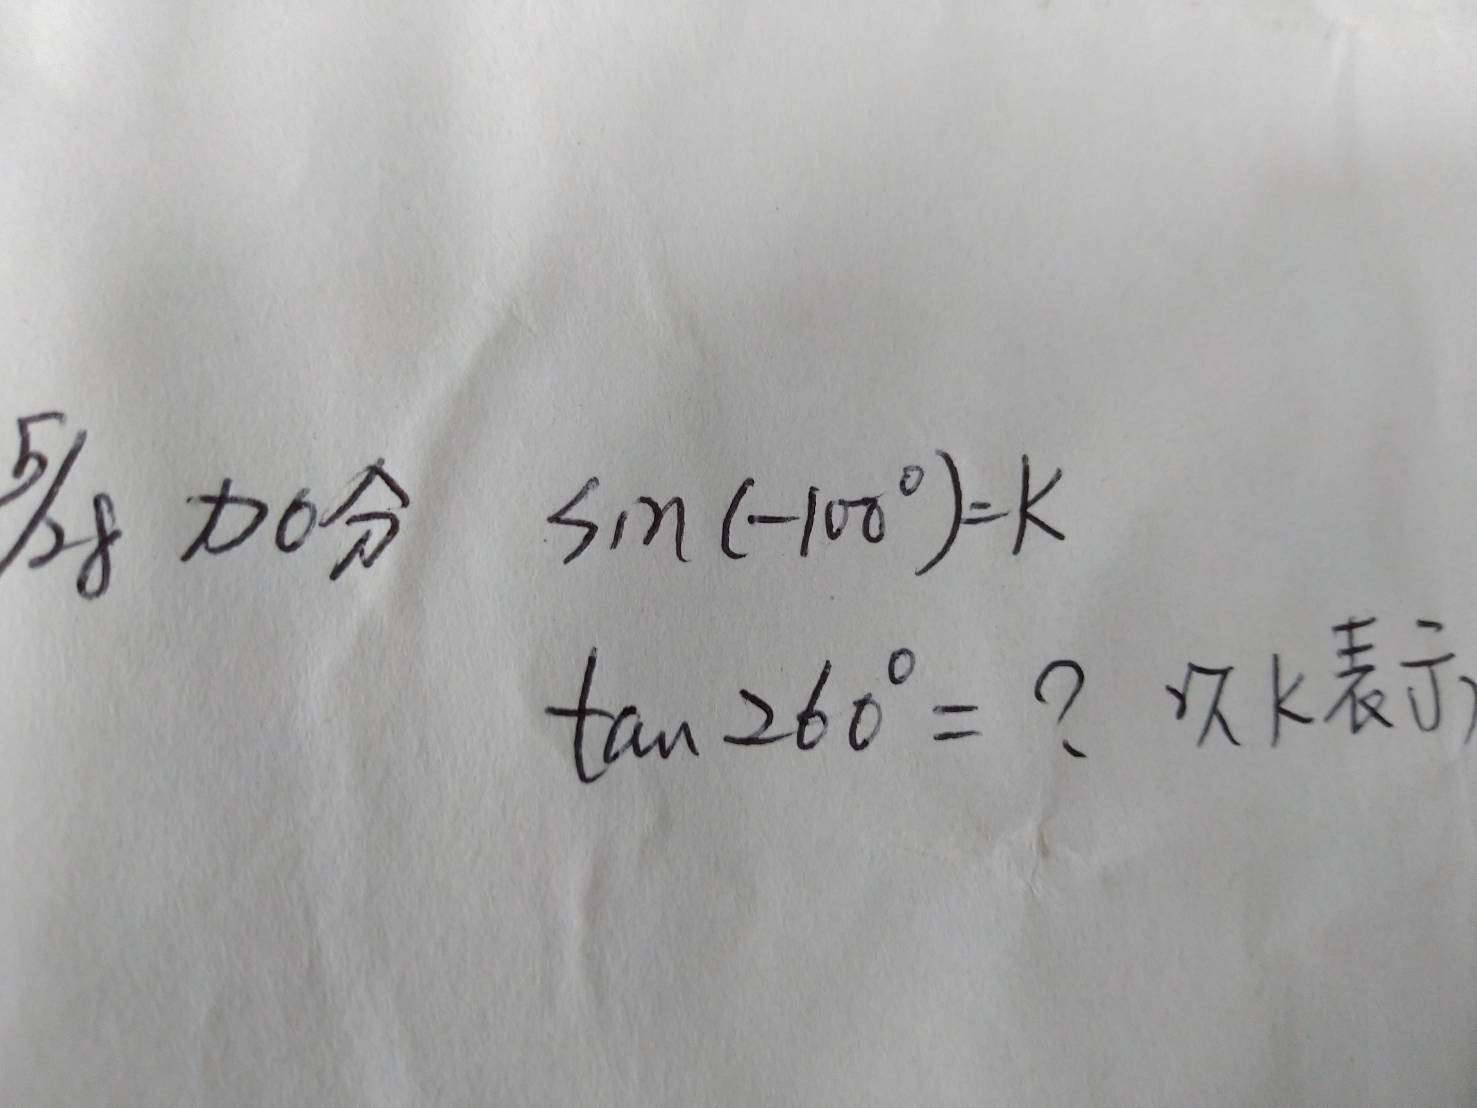 5/28 加分 sin(-100°)=K
tan260°=? 以K表示